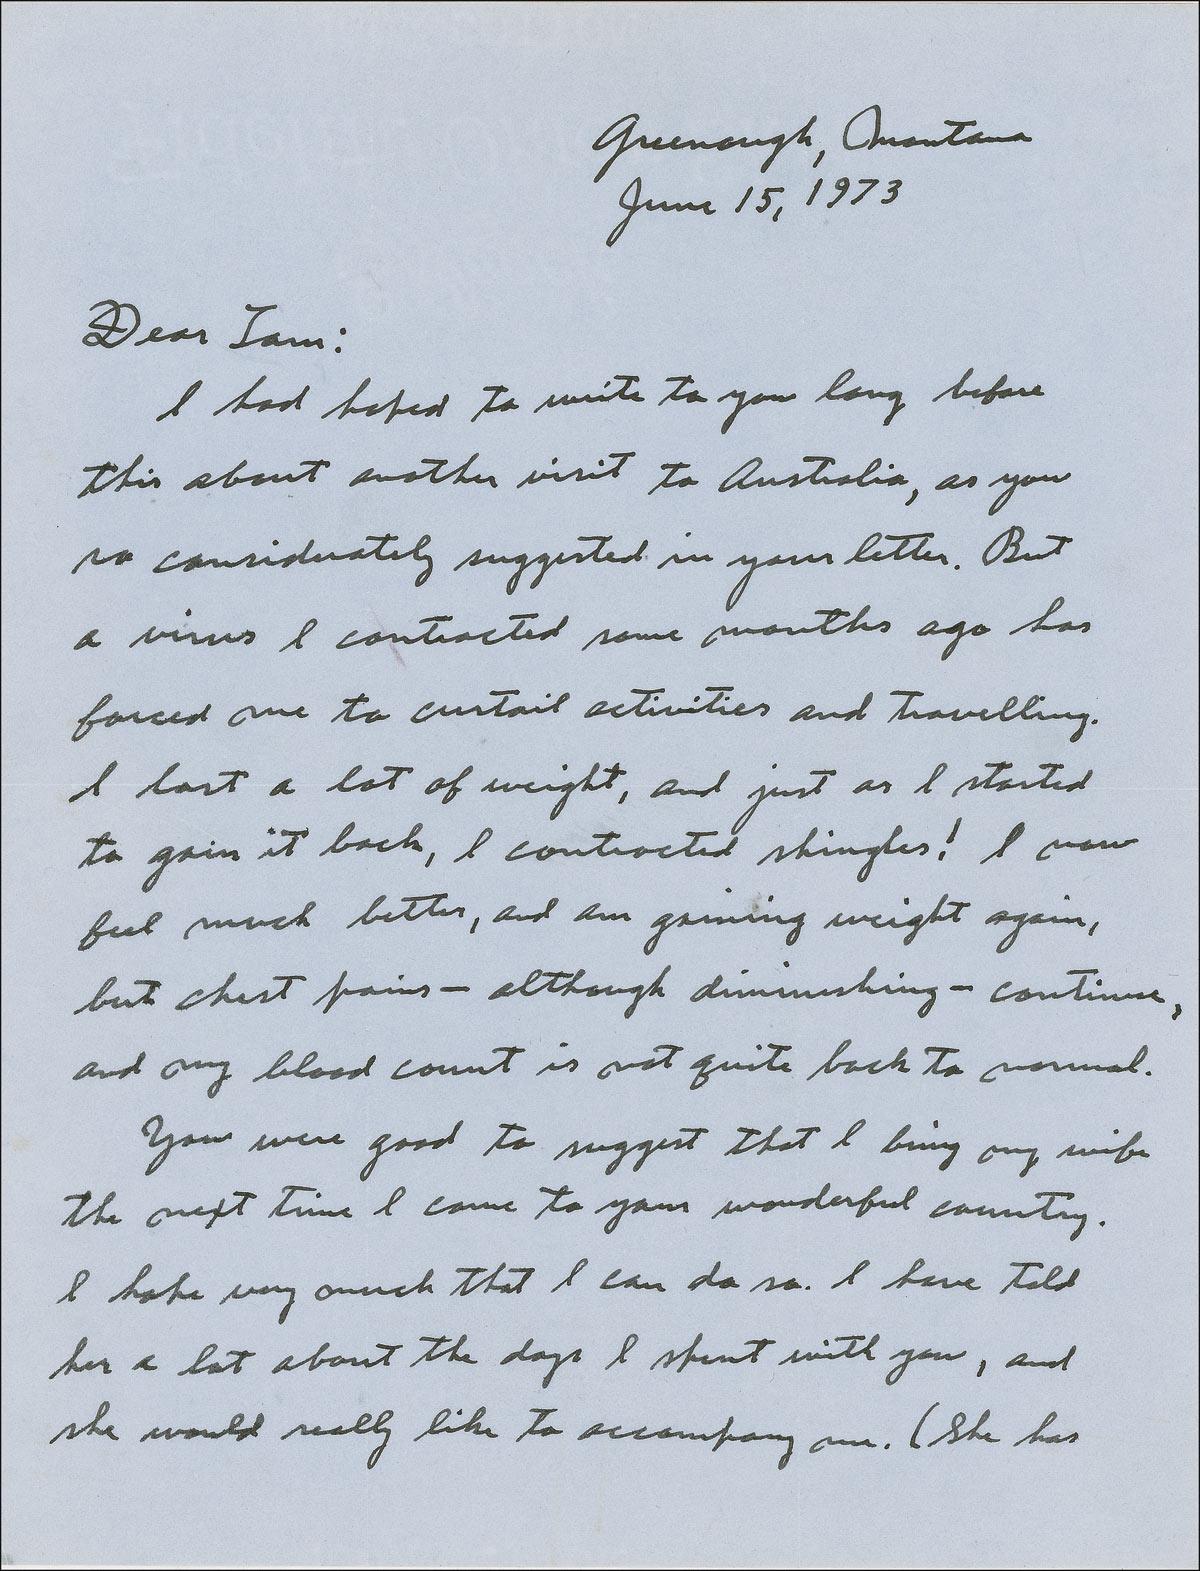 Greenough, Montana
June 15, 1973
Dear Tom:
I had hoped to write to you long before
this about another visit to Australia, as you
so considerately suggested in your letter. But
a virus I contracted some months ago has
forced me to curtail activities and travelling.
I lost a lot of weight, and just as I started
to gain it back, I contracted shingles! I now
feel much better, and am gaining weight again,
but chest pains – although diminishing – continue,
and my blood count is not quite back to normal.
You were good to suggest that I bring my wife
the next time I come to your wonderful country.
I hope very much that I can do so. I have told
her a lot about the days I spent with you, and
she would really like to accompany me. (She has